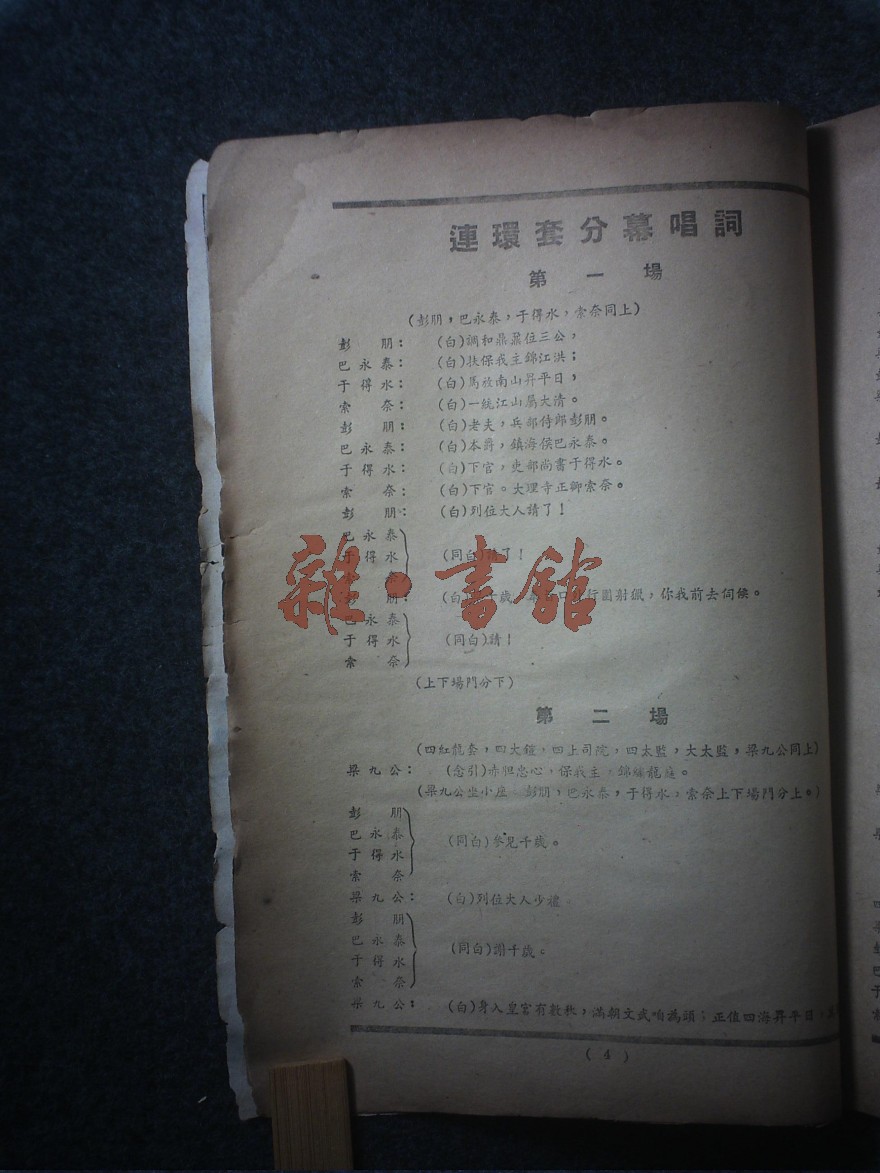 連環套分幕唱詞
第一場
(彭朋，巴永泰，于得水，索奈同上)
彭朋： (白)調和鼎鼐位三公，
巴永泰： (白)扶保我主錦江洪；
于得水： (白)馬放南山昇平日，
索奈： (白)一統江山屬大清。
彭朋： (白)老夫，兵部侍郎彭朋。
巴永泰： (白)本爵，鎮海侯巴永泰。
于得水： (白)下官，吏部尚書于得水。
索奈： (白)下官。大理寺正卿索奈。
彭朋： (白)列位大人請了！
巴永泰
于得水 (同白)請了！
彭朋： (白)千歲口行圍射獵，你我前去伺候。
巴永泰
于得水 (同白)請！
索奈
(上下場門分下)
第二場
(四紅龍套，四大鎧，四上司院，四太監，大太監，梁九公同上)
梁九公： (念引)赤胆忠心，保我主，錦繡龍庭。
(梁九公坐小座 彭朋，巴永泰，于得水，索奈上下場門分上。)
彭朋
巴永泰
于得水 (同白)參見千歲。
索奈
梁九公： (白)列位大人少禮
彭朋
巴永泰
于得水 (同白)謝千歲。
索奈
梁九公： (白)身入皇宮有數秋，滿朝文武咱為頭；正值四海昇平日，
(4)
雜·書館